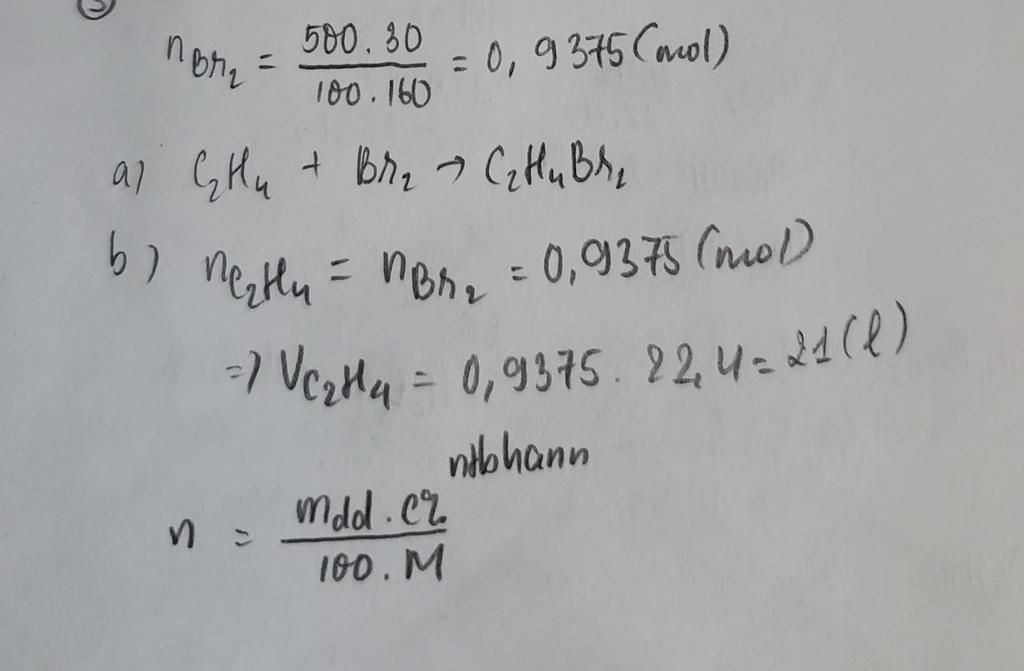 3
n_Br₂ = 500 . 30 / 100 . 160 = 0, 9375 (mol)
a) C₂H₄ + Br₂ → C₂H₄Br₂
b) n_C₂H₄ = n_Br₂ = 0,9375 (mol)
=) V_C₂H₄ = 0,9375 . 22,4 = 21 (l)
ntbhann
n = mdd . C% / 100 . M